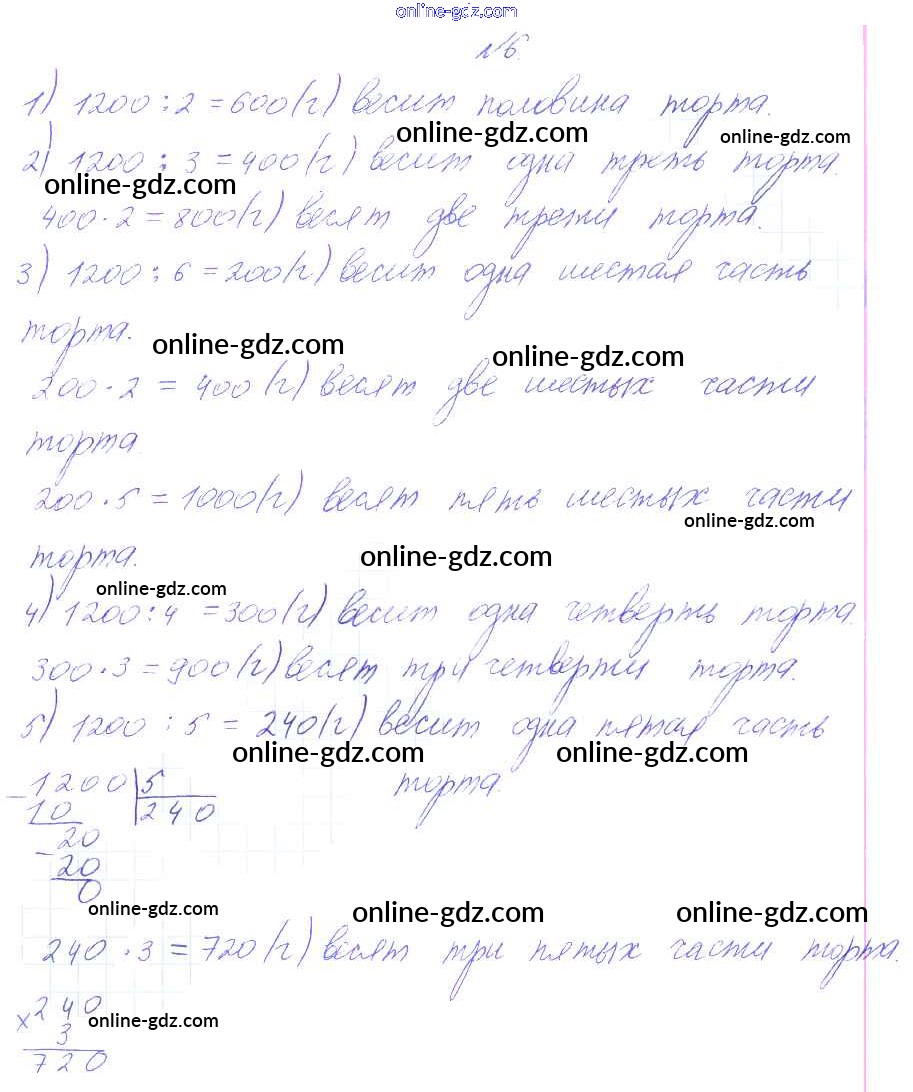 online-gdz.com
№6.
1) 1200 : 2 = 600 (г) весит половина торта.
online-gdz.com online-gdz.com
2) 1200 : 3 = 400 (г) весит одна треть торта.
online-gdz.com
400 · 2 = 800 (г) весят две трети торта.
3) 1200 : 6 = 200 (г) весит одна шестая часть
торта.
online-gdz.com online-gdz.com
200 · 2 = 400 (г) весят две шестых части
торта.
200 · 5 = 1000 (г) весят пять шестых части
online-gdz.com
торта.
online-gdz.com
online-gdz.com
4) 1200 : 4 = 300 (г) весит одна четверть торта.
300 · 3 = 900 (г) весят три четверти торта.
5) 1200 : 5 = 240 (г) весит одна пятая часть
online-gdz.com online-gdz.com
торта.
- 1200 | 5
10 | 240
- 20
20
0
online-gdz.com online-gdz.com online-gdz.com
240 · 3 = 720 (г) весят три пятых части торта.
× 240
3
online-gdz.com
720